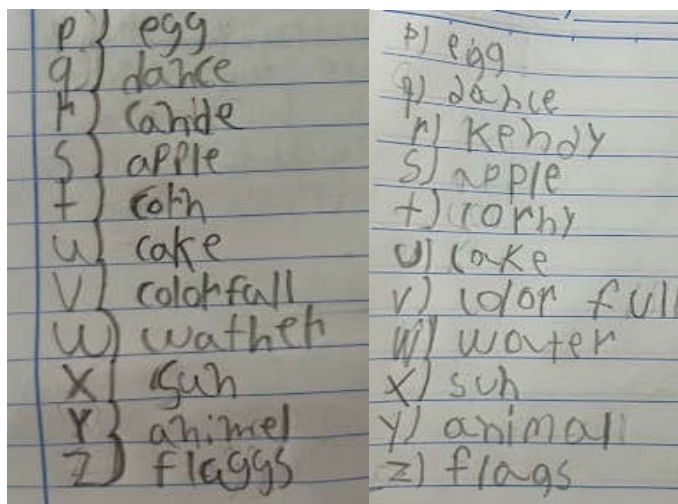 p) egg
q) dance
r) cande
s) apple
t) corn
u) cake
v) colorfall
w) wather
x) sun
y) animel
z) flaggs
p) egg
q) dance
r) kendy
s) apple
t) corny
u) cake
v) color full
w) water
x) sun
y) animal
z) flags